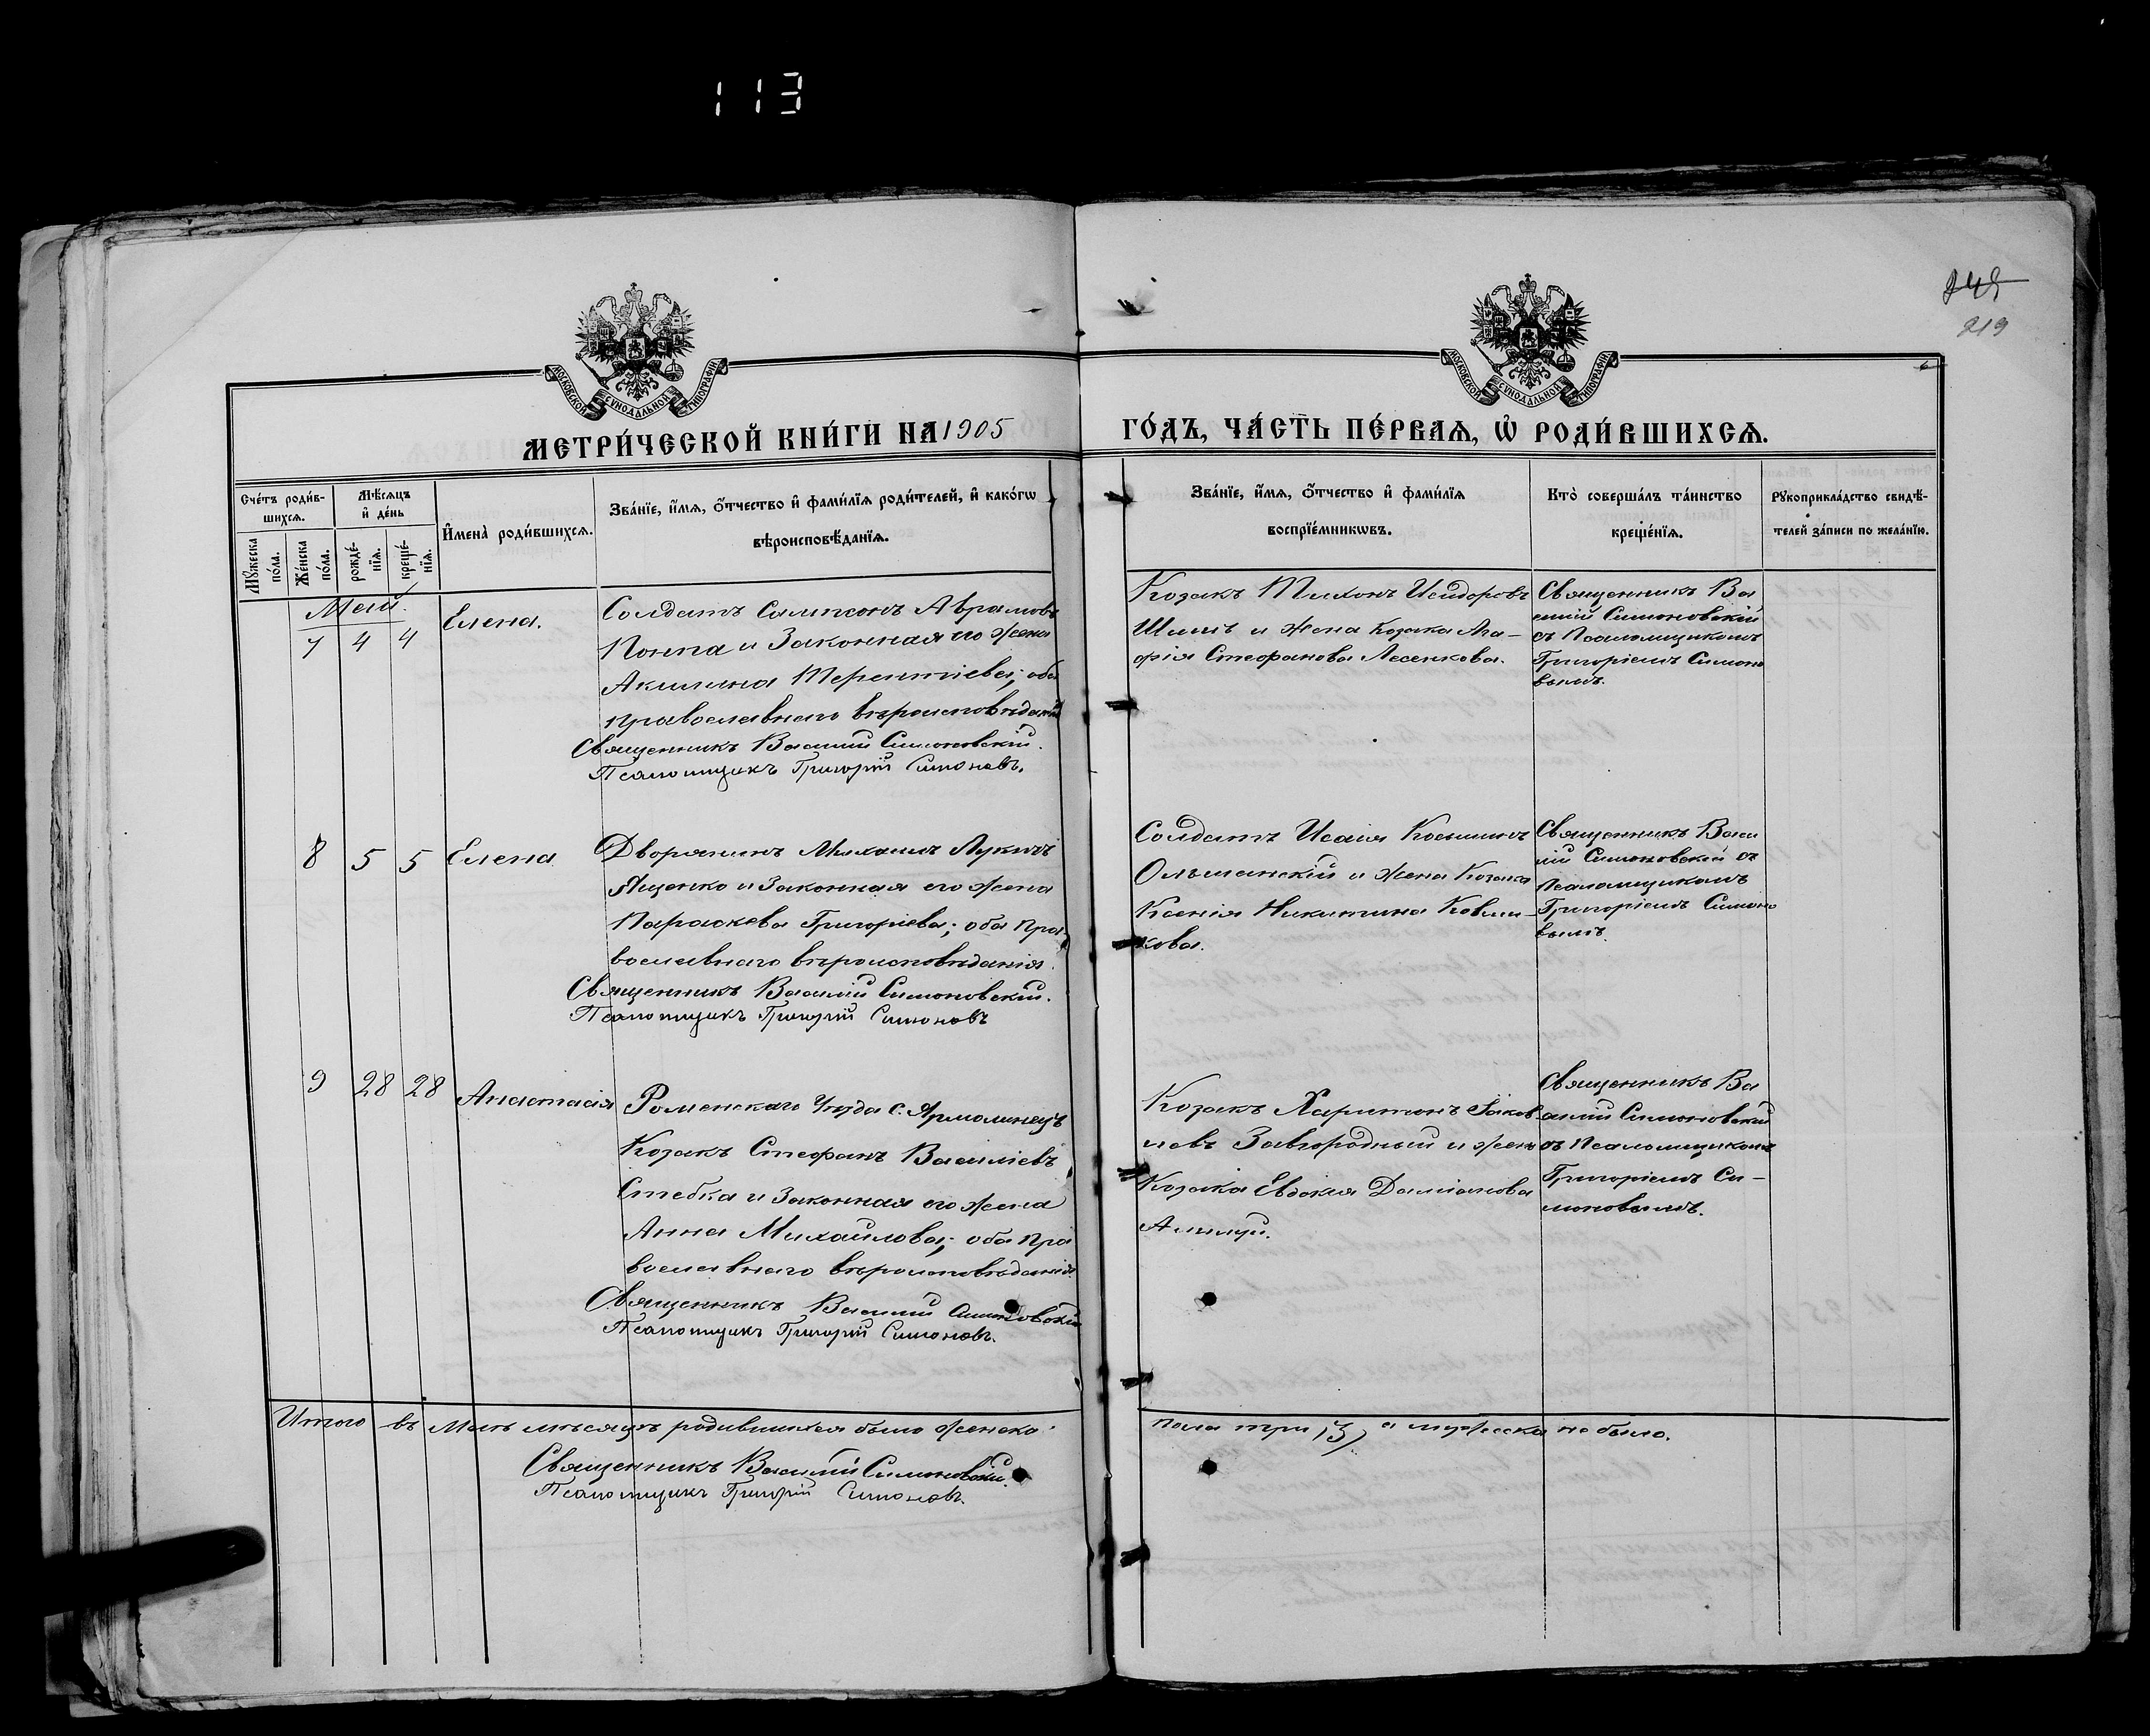 113
219
МОСКОВСКОЙ СѴНОДАЛЬНОЙ ТИПОГРАФІИ
МОСКОВСКОЙ СѴНОДАЛЬНОЙ ТИПОГРАФІИ
МЕТРИ́ЧЕСКОЙ КНИ́ГИ НА 1905
ГО́ДЪ, ЧА́СТЬ ПЕ́РВАѦ, Ѡ҆ РОДИ́ВШИХСѦ.
Сче́тъ роди́в-
шихсѧ.
Мѣ́сѧцъ
и҆ де́нь
Мꙋ́жеска
по́ла.
Же́нска
по́ла.
рожде́-
нїѧ.
креще́-
нїѧ.
И҆мена̀ роди́вшихсѧ.
Зва́нїе, и҆́мѧ, ѻ҆́тчество и҆ фами́лїѧ роди́телей, и҆ како́гѡ
вѣроисповѣ́данїѧ.
Зва́нїе, и҆́мѧ, ѻ҆́тчество и҆ фами́лїѧ
воспрїе́мникѡвъ.
Кто̀ соверша́лъ та́инство
креще́нїѧ.
Рꙋкоприкла́дство свидѣ́-
телей за́писи по жела́нїю.
Май.
7 4 4
Елена.
Солдатъ Сампсонъ Аврамовъ
Понпа и Законная его жена
Акилина Терентіева; оба
православнаго вѣроисповѣданія
Священникъ Василій Симоновскій.
Псаломщикъ Григорій Симоновъ.
Козакъ Тихонъ Исидоровъ
Шить и жена Козака Ага-
фія Стефанова Лесенкова.
Священникъ Ва
силій Симоновскій
съ Псаломщикомъ
Григоріемъ Симоно
вымъ.
8 5 5
Елена
Дворянинъ Михаилъ Лукичъ
Яценко и Законная его жена
Параскева Григоріева; оба пра-
вославнаго вѣроисповѣданія.
Священникъ Василій Симоновскій.
Псаломщикъ Григорій Симоновъ
Солдатъ Исаія Косьминъ
Ольшанскій и жена Козака
Ксенія Никитина
кова.
Священникъ Васи
лій Симоновскій съ
Псаломщикомъ
Григоріемъ Симоно
вымъ.
9 28 28
Анастасія
Роменскаго Уѣзда с. Ярмолинецъ
Козакъ Стефанъ Василіевъ
Стебка и Законная его жена
Анна Михайлова; оба пра
вославнаго вѣроисповѣданія.
Священникъ Василій Симоновскій
Псаломщикъ Григорій Симоновъ.
Козакъ Харитонъ Іаков
левъ Завгородный и жена
Козака Евдокія Даміанова
Священникъ Ва
силій Симоновскій
съ Псаломщикомъ
Григоріемъ Си-
моновымъ.
Итого въ Маѣ мѣсяцѣ родившихся было женска
пола три /3/ а мужеска не было.
Священникъ Василій Симоновскій.
Псаломщикъ Григорій Симоновъ.